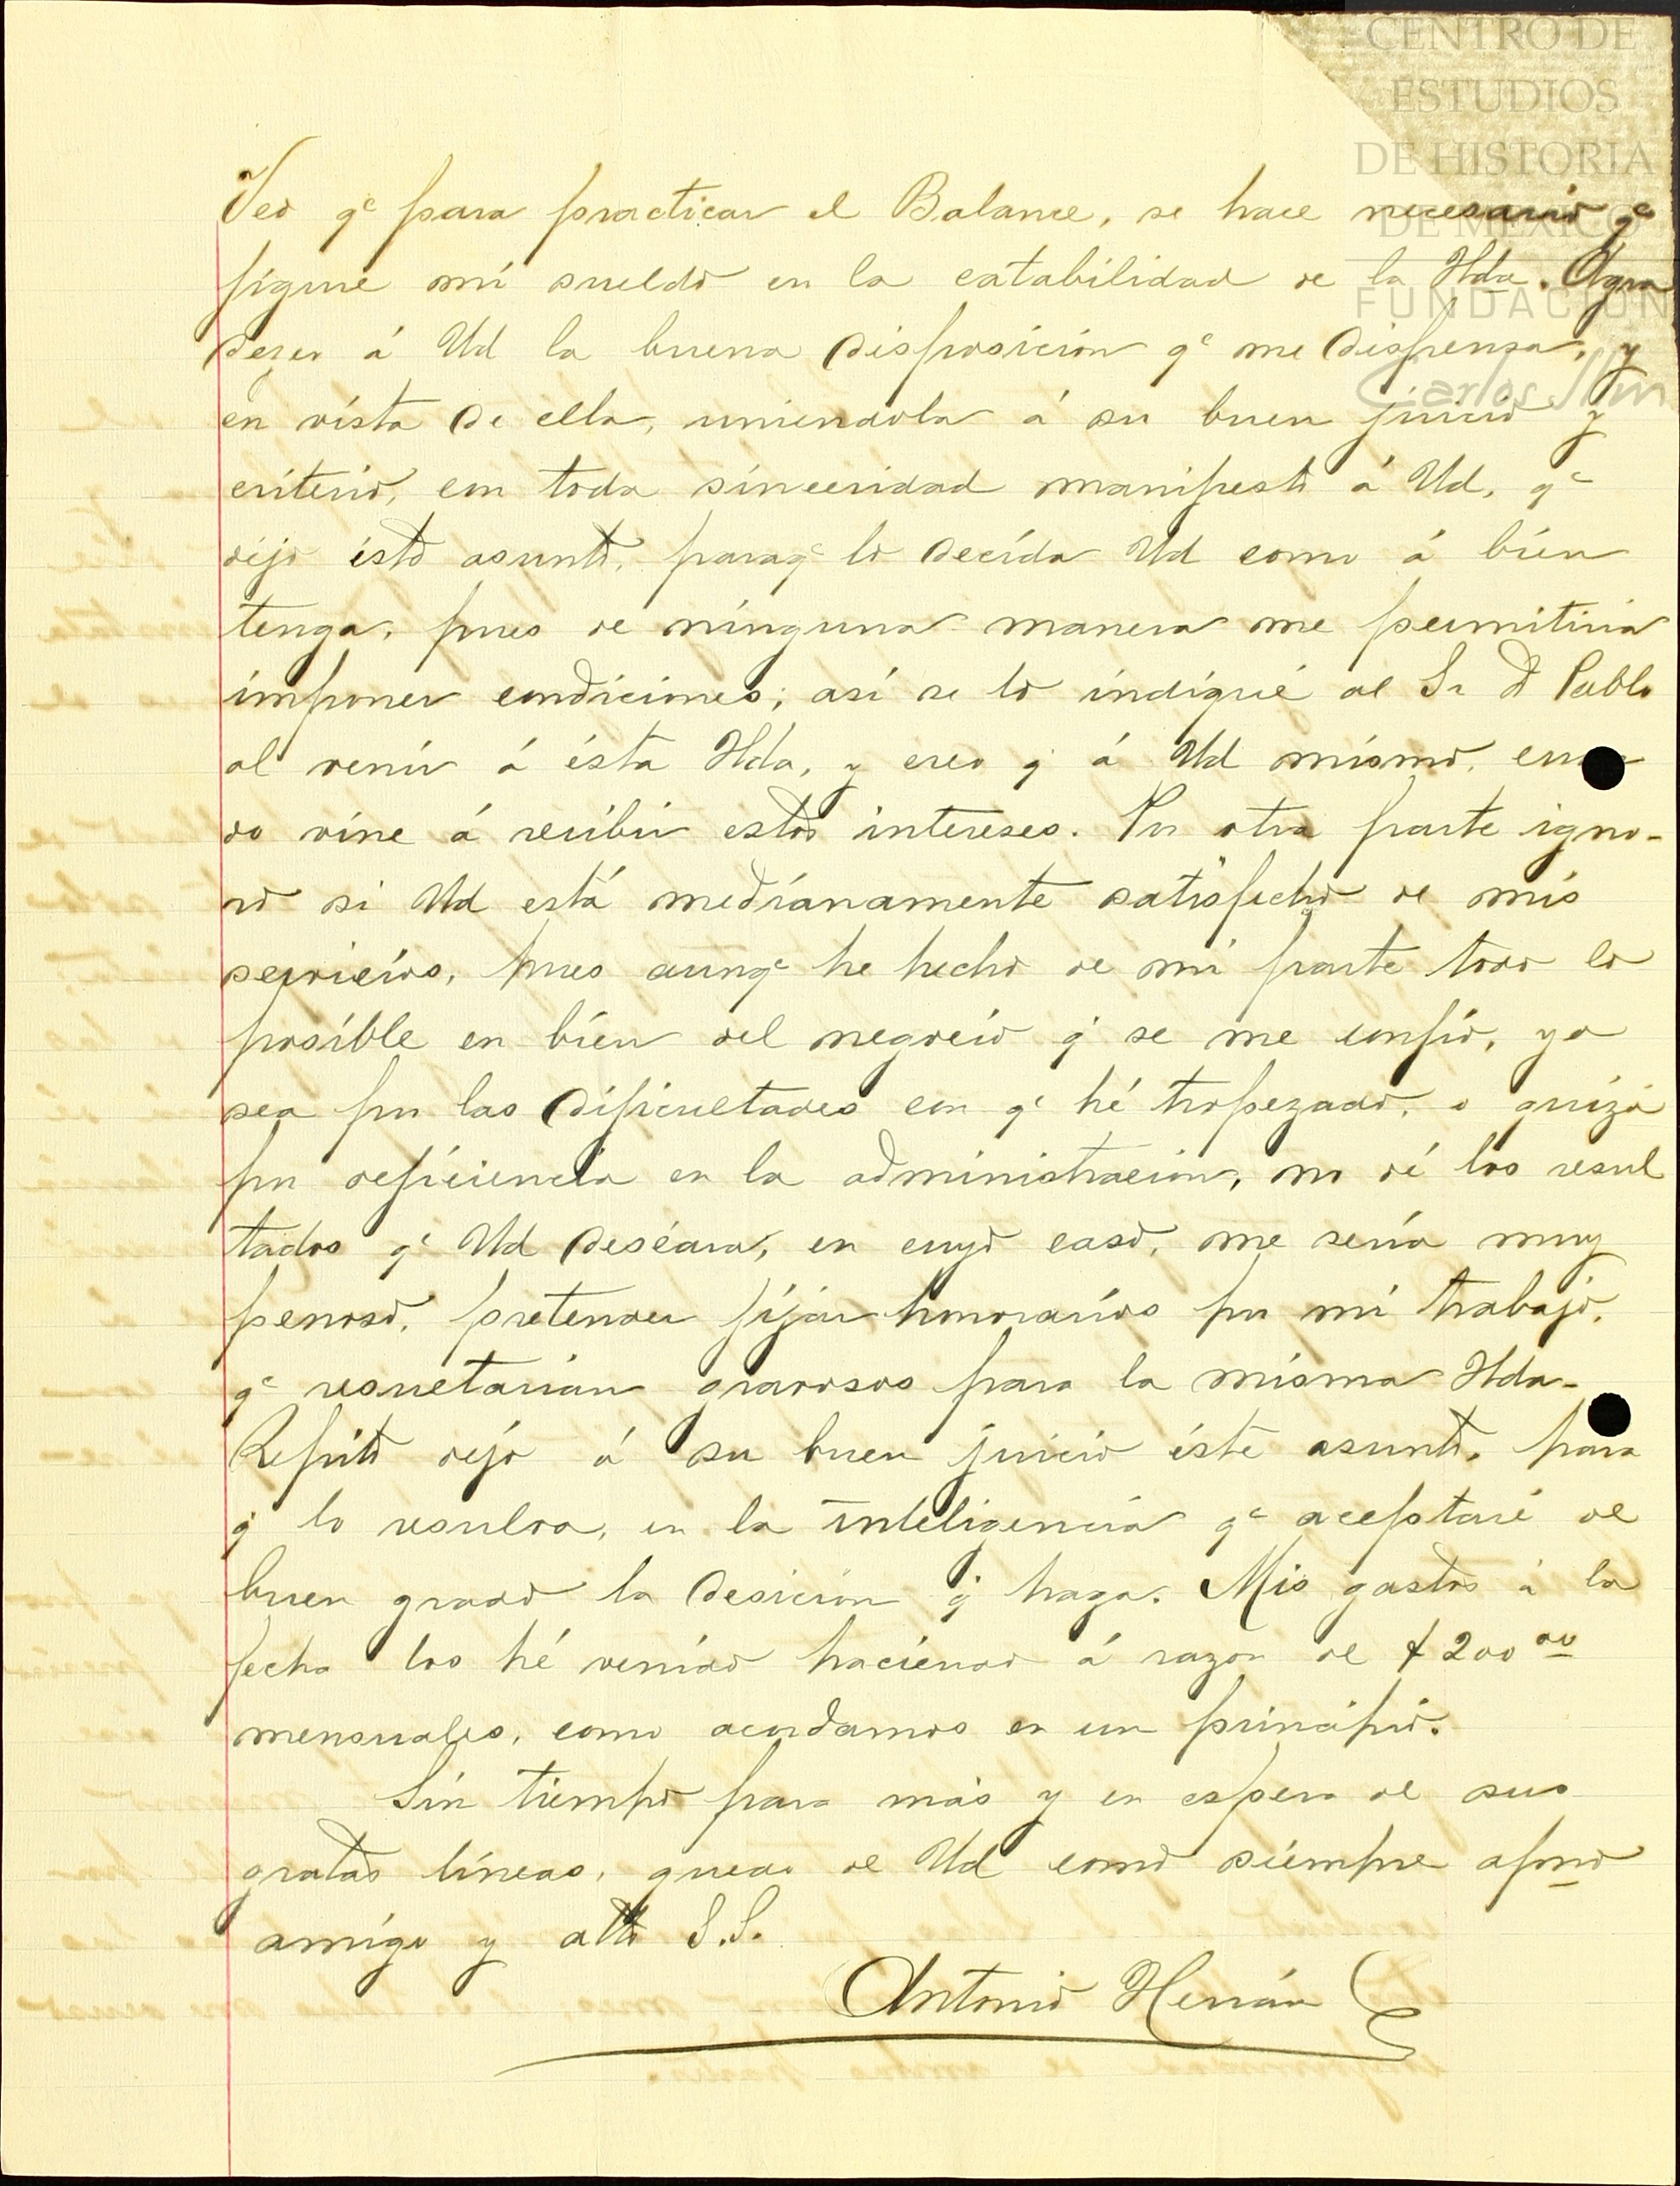 CENTRO DE
ESTUDIOS
DE HISTORIA
DE MÉXICO
FUNDACIÓN
Carlos Slim
Veo qe para practicar el Balance, se hace necesario qe
figure mi sueldo en la catabilidad de la Hda. Agra
dezco á Ud la buena disposición qe me dispensa, y
en vista de ella, uniendola á su buen juicio y
criterio, con toda sinceridad manifesto á Ud, qe
dejo ésto asunto, paraqe lo decida Ud como á bien
tenga, pues de ninguna manera me permitiria
imponer condiciones; asi se lo indiqué al Sr D Pablo
al venir á ésta Hda, y creo q á Ud mismo, cuan
do vine á recibir estos intereses. Por otra parte igno-
ro si Ud está medianamente satisfecho de mis
servicios, pues aunqe he hecho de mi parte todo lo
posible en bien del negocio q se me confió, ya
sea por las dificultades con qe hé tropezado, o quizá
por deficiencia en la administracion, no dé los resul
tados qe Ud deséara, en cuyo caso, me sería muy
penoso, pretender fijar honorarios por mi trabajo,
qe resultarian gravosos para la misma Hda-
Repito dejo á su buen juicio éste asunto, para
q lo resulva, en la inteligencia qe aceptaré de
buen grado la desicion q haga. Mis gastos á la
fecha los hé venido haciendo á razon de $200 00
mensuales, como acordamos en un principio.
Sin tiempo para más y en espera de sus
gratas líneas, quedo de Ud como siempre afmo
amigo y atto S.S.
Antonio Hernán